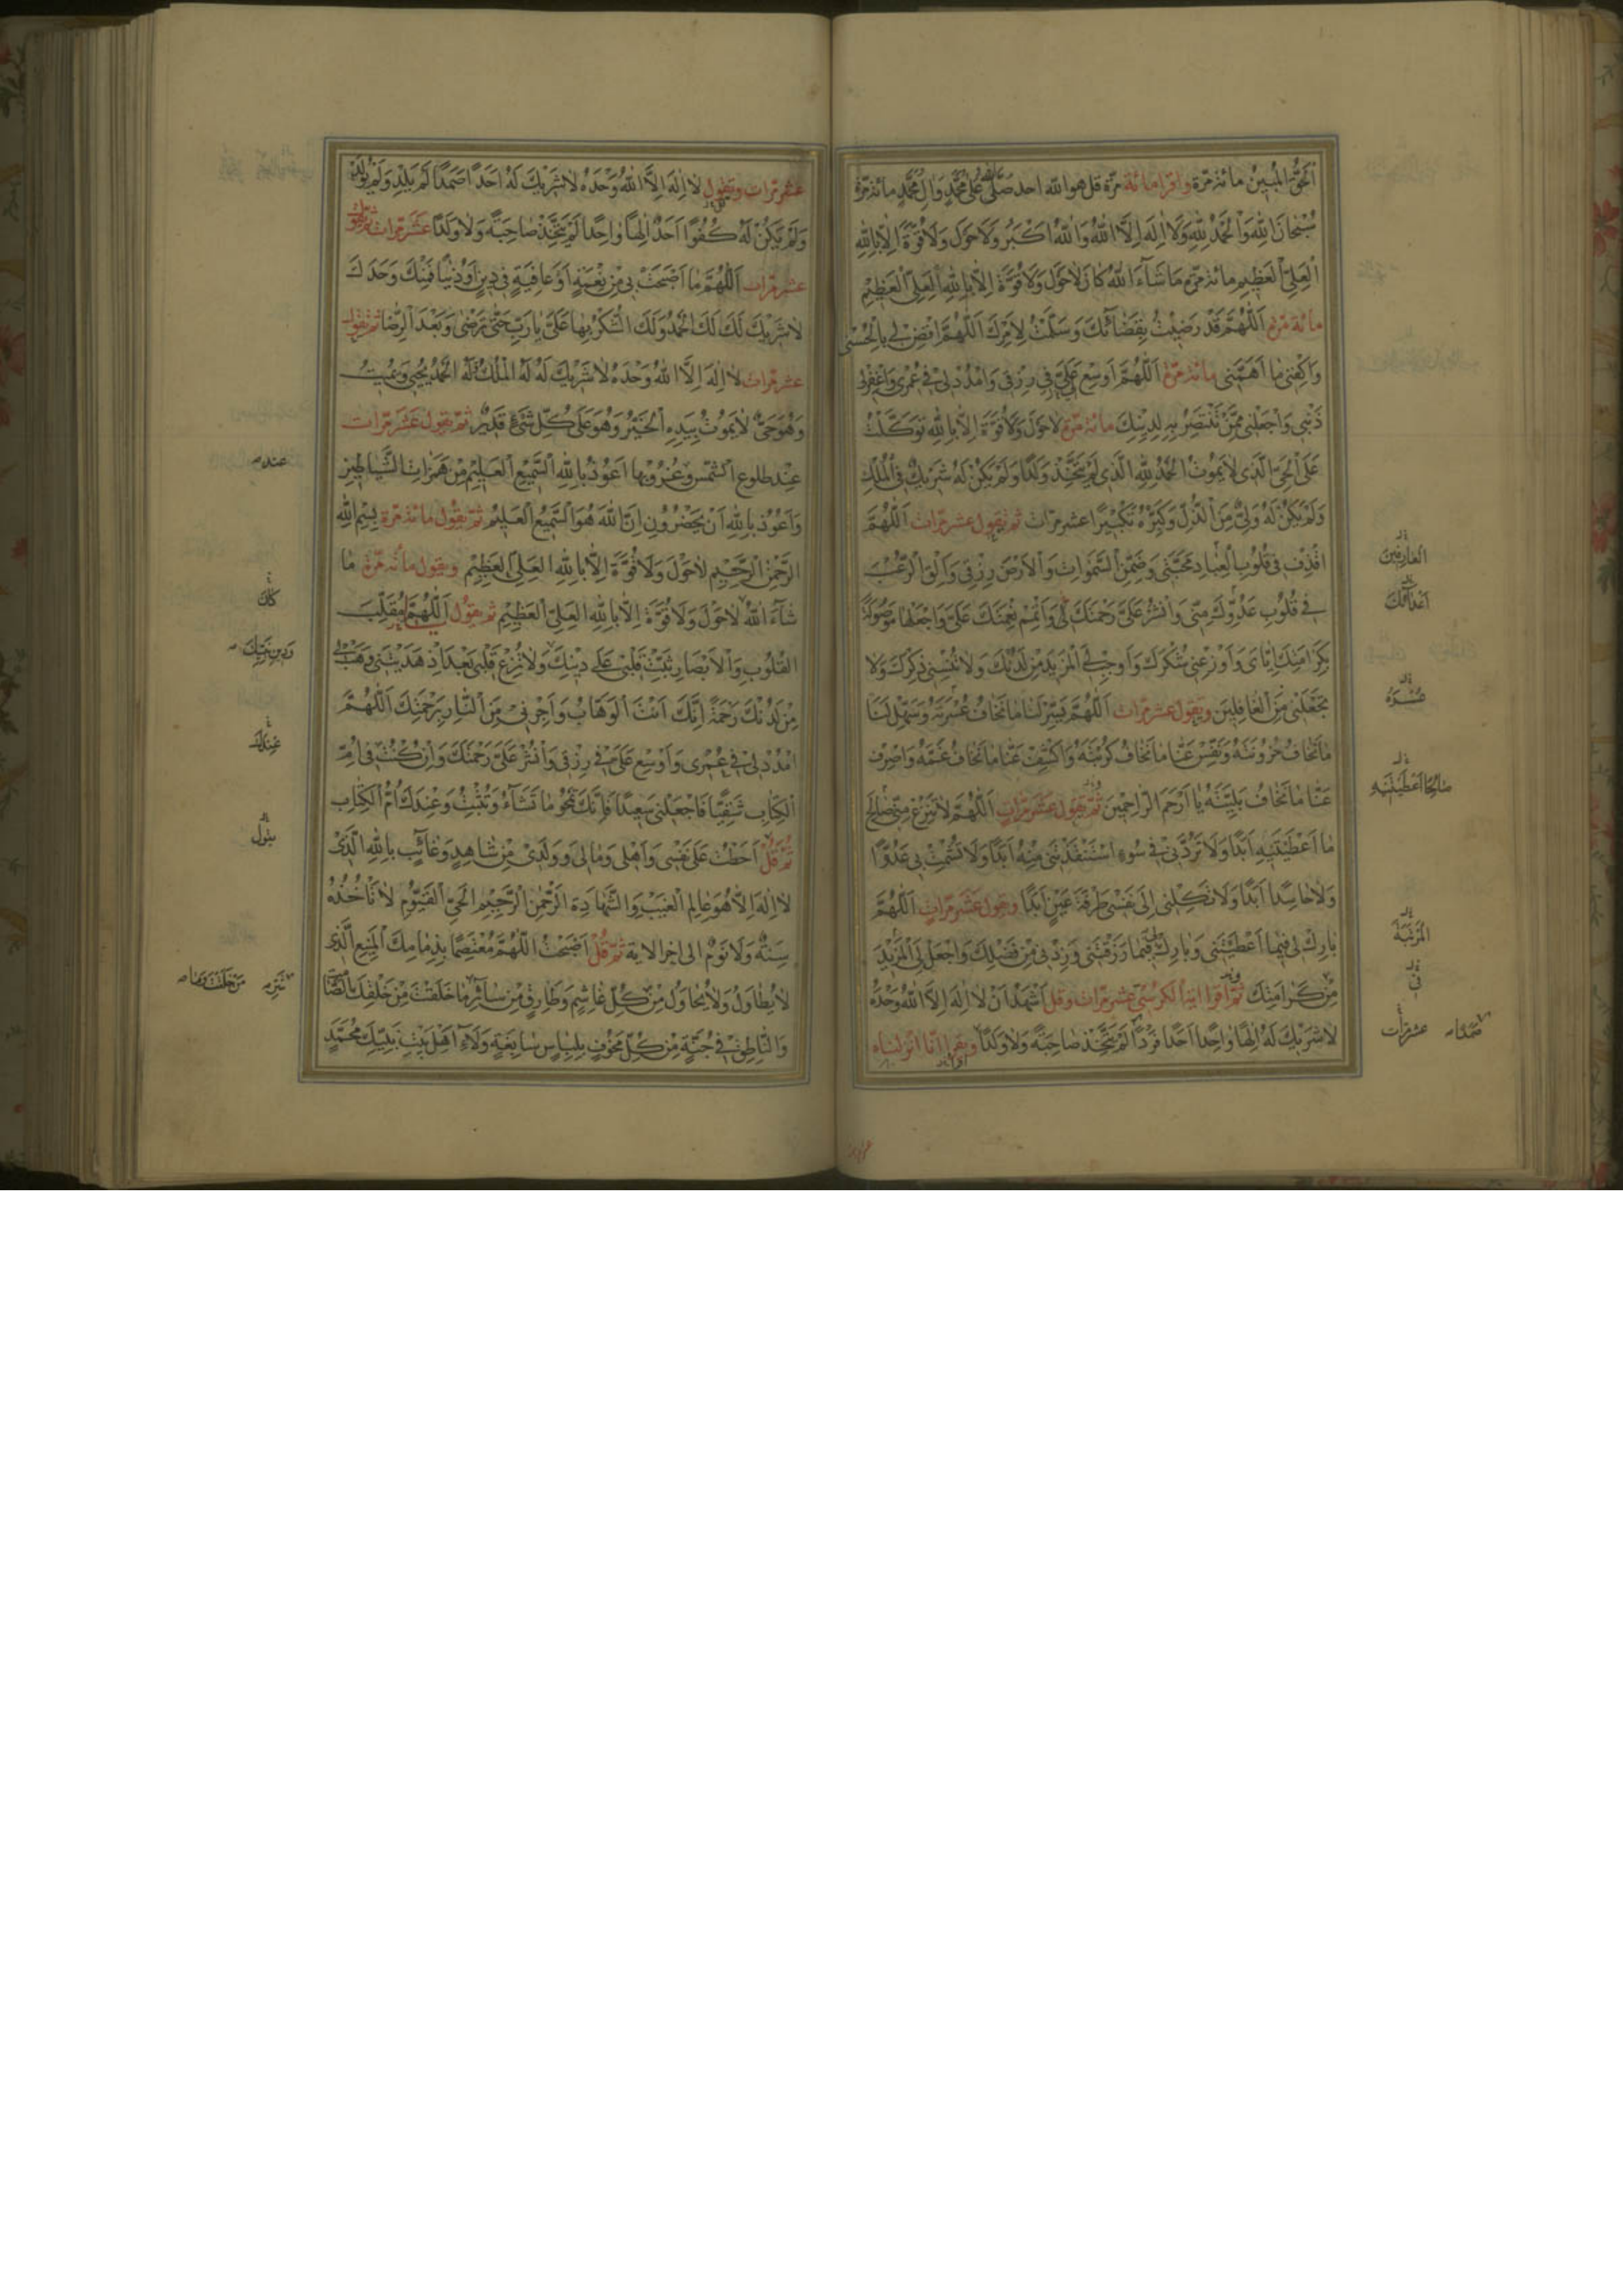 اَلْحَقُّ الْمُبِينُ مائة مرّة واقرا مائة مرّة قل هو اللّه احد صَلَّى اللّٰهُ عَلٰى مُحَمَّدٍ وَالِ مُحَمَّدٍ مائة مرّة
سُبْحَانَ اللّٰهِ وَالْحَمْدُ لِلّٰهِ وَلَا اِلٰهَ اِلَّا اللّٰهُ وَاللّٰهُ اَكْبَرُ وَلَا حَوْلَ وَلَا قُوَّةَ اِلَّا بِاللّٰهِ
الْعَلِىِّ الْعَظِيمِ مائة مرّة مَا شَاءَ اللّٰهُ كَانَ لَا حَوْلَ وَلَا قُوَّةَ اِلَّا بِاللّٰهِ الْعَلِىِّ الْعَظِيمِ
مائة مرّة اَللّٰهُمَّ قَدْ رَضِيتُ بِقَضَائِكَ وَسَلَّمْتُ لِاَمْرِكَ اَللّٰهُمَّ اقْضِ لِى بِالْحُسْنٰى
وَاكْفِنِى مَا اَهَمَّنِى مائة مرّة اَللّٰهُمَّ اَوْسِعْ عَلَىَّ فِى رِزْقِى وَامْدُدْ لِى فِى عُمْرِى وَاغْفِرْ لِى
ذَنْبِى وَاجْعَلْنِى مِمَّنْ تَنْتَصِرُ بِهِ لِدِينِكَ مائة مرّة لَا حَوْلَ وَلَا قُوَّةَ اِلَّا بِاللّٰهِ تَوَكَّلْتُ
عَلَى الْحَىِّ الَّذِى لَا يَمُوتُ الْحَمْدُ لِلّٰهِ الَّذِى لَمْ يَتَّخِذْ وَلَدًا وَلَمْ يَكُنْ لَهُ شَرِيكٌ فِى الْمُلْكِ
وَلَمْ يَكُنْ لَهُ وَلِىٌّ مِنَ الذُّلِّ وَكَبِّرْهُ تَكْبِيرًا عشر مرّات ثم تقول عشر مرّات اَللّٰهُمَّ
اقْذِفْ فِى قُلُوبِ الْعِبَادِ مَحَبَّتِى وَضَمِّنِ السَّمٰوَاتِ وَالْاَرْضَ رِزْقِى وَاَلْقِ الرُّعْبَ
فِى قُلُوبِ عَدُوِّكَ مِنِّى وَانْشُرْ عَلَىَّ رَحْمَتَكَ لِى وَاَتْمِمْ نِعْمَتَكَ عَلَىَّ وَاجْعَلْهَا مَوْصُولَةً
بِكَرَامَتِكَ اِيَّاىَ وَاَوْزِعْنِى شُكْرَكَ وَاَوْجِبْ لِى الْمَزِيدَ مِنْ لَدُنْكَ وَلَا تُنْسِنِى ذِكْرَكَ وَلَا
تَجْعَلْنِى مِنَ الْغَافِلِينَ وتقول عشر مرّات اَللّٰهُمَّ يَسِّرْ لَنَا مَا نَخَافُ عُسْرَتَهُ وَسَهِّلْ لَنَا
مَا نَخَافُ حُزُونَتَهُ وَنَفِّسْ عَنَّا مَا نَخَافُ كُرْبَتَهُ وَاكْشِفْ عَنَّا مَا نَخَافُ غَمَّهُ وَاصْرِفْ
عَنَّا مَا نَخَافُ بَلِيَّتَهُ يَا اَرْحَمَ الرَّاحِمِينَ ثمّ تقول عشر مرّات اَللّٰهُمَّ لَا تَنْزِعْ مِنِّى صَالِحَ
مَا اَعْطَيْتَنِيهِ اَبَدًا وَلَا تَرُدَّنِى فِى سُوءٍ اسْتَنْقَذْتَنِى مِنْهُ اَبَدًا وَلَا تُشْمِتْ بِى عَدُوًّا
وَلَا حَاسِدًا اَبَدًا وَلَا تَكِلْنِى اِلٰى نَفْسِى طَرْفَةَ عَيْنٍ اَبَدًا وتقول عشر مرّات اَللّٰهُمَّ
بَارِكْ لِى فِيمَا اَعْطَيْتَنِى وَبَارِكْ لِى فِيمَا رَزَقْتَنِى وَزِدْنِى مِنْ فَضْلِكَ وَاجْعَلْ لِىَ الْمَزِيدَ
مِنْ كَرَامَتِكَ ثمّ اقرا آية الكرسىّ عشر مرّات وقل اَشْهَدُ اَنْ لَا اِلٰهَ اِلَّا اللّٰهُ وَحْدَهُ
لَا شَرِيكَ لَهُ اِلٰهًا وَاحِدًا اَحَدًا فَرْدًا لَمْ يَتَّخِذْ صَاحِبَةً وَلَا وَلَدًا ويقرا انّا انزلناه
اَعْدَائِكَ
عُسْرَهُ
صَالِحًا اَعْطَيْتَنِيهِ
فى
صَمَدًا عشر مرات
عشر مرّات وتقول لَا اِلٰهَ اِلَّا اللّٰهُ وَحْدَهُ لَا شَرِيكَ لَهُ اَحَدًا صَمَدًا لَمْ يَلِدْ وَلَمْ يُولَدْ
وَلَمْ يَكُنْ لَهُ كُفُوًا اَحَدٌ اِلٰهًا وَاحِدًا لَمْ يَتَّخِذْ صَاحِبَةً وَلَا وَلَدًا عشر مرّات ثم تقول
عشر مرّات اَللّٰهُمَّ مَا اَصْبَحَتْ بِى مِنْ نِعْمَةٍ اَوْ عَافِيَةٍ فِى دِينٍ اَوْ دُنْيَا فَمِنْكَ وَحْدَكَ
لَا شَرِيكَ لَكَ لَكَ الْحَمْدُ وَلَكَ الشُّكْرُ بِهَا عَلَىَّ يَا رَبِّ حَتّٰى تَرْضٰى وَبَعْدَ الرِّضَا ثم تقول
عشر مرّات لَا اِلٰهَ اِلَّا اللّٰهُ وَحْدَهُ لَا شَرِيكَ لَهُ لَهُ الْمُلْكُ وَلَهُ الْحَمْدُ يُحْيِى وَيُمِيتُ
وَهُوَ حَىٌّ لَا يَمُوتُ بِيَدِهِ الْخَيْرُ وَهُوَ عَلٰى كُلِّ شَىْءٍ قَدِيرٌ ثمّ تقول عشر مرّات
عِنْدَ طلوع الشمس وغروبها اَعُوذُ بِاللّٰهِ السَّمِيعِ الْعَلِيمِ مِنْ هَمَزَاتِ الشَّيَاطِينِ
وَاَعُوذُ بِاللّٰهِ اَنْ يَحْضُرُونِ اِنَّ اللّٰهَ هُوَ السَّمِيعُ الْعَلِيمُ ثمّ تقول مائة مرّة بِسْمِ اللّٰهِ
الرَّحْمٰنِ الرَّحِيمِ لَا حَوْلَ وَلَا قُوَّةَ اِلَّا بِاللّٰهِ الْعَلِىِّ الْعَظِيمِ ويقول مائة مرّة مَا
شَاءَ اللّٰهُ لَا حَوْلَ وَلَا قُوَّةَ اِلَّا بِاللّٰهِ الْعَلِىِّ الْعَظِيمِ ثم تقول اَللّٰهُمَّ مُقَلِّبَ
الْقُلُوبِ وَالْاَبْصَارِ ثَبِّتْ قَلْبِى عَلٰى دِينِكَ وَلَا تُزِغْ قَلْبِى بَعْدَ اِذْ هَدَيْتَنِى وَهَبْ لِى
مِنْ لَدُنْكَ رَحْمَةً اِنَّكَ اَنْتَ الْوَهَّابُ وَاَجِرْنِى مِنَ النَّارِ بِرَحْمَتِكَ اَللّٰهُمَّ
امْدُدْ لِى فِى عُمْرِى وَاَوْسِعْ عَلَىَّ فِى رِزْقِى وَانْشُرْ عَلَىَّ رَحْمَتَكَ وَاِنْ كُنْتُ فِى اُمِّ
الْكِتَابِ شَقِيًّا فَاجْعَلْنِى سَعِيدًا فَاِنَّكَ تَمْحُو مَا تَشَاءُ وَتُثْبِتُ وَعِنْدَكَ اُمُّ الْكِتَابِ
ثمّ قل اَحَطْتُ عَلٰى نَفْسِى وَاَهْلِى وَمَالِى وَوَلَدِى مِنْ شَاهِدٍ وَغَائِبٍ بِاللّٰهِ الَّذِى
لَا اِلٰهَ اِلَّا هُوَ عَالِمِ الْغَيْبِ وَالشَّهَادَةِ الرَّحْمٰنِ الرَّحِيمِ الْحَىِّ الْقَيُّومِ لَا تَأْخُذُهُ
سِنَةٌ وَلَا نَوْمٌ الى اخر الاية ثمّ قل اَصْبَحْتُ اللّٰهُمَّ مُعْتَصِمًا بِذِمَامِكَ الْمَنِيعِ الَّذِى
لَا يُطَاوَلُ وَلَا يُحَاوَلُ مِنْ كُلِّ غَاشِمٍ وَطَارِقٍ مِنْ سَائِرِ مَا خَلَقْتَ مِنْ خَلْقِكَ الصَّامِتِ
وَالنَّاطِقِ فِى جُنَّةٍ مِنْ كُلِّ مَخُوفٍ بِلِبَاسٍ سَابِغَةٍ وَلَاءِ اَهْلِ بَيْتِ نَبِيِّكَ مُحَمَّدٍ
عند
وَدِينِ نَبِيِّكَ
عِنْدَكَ
مَنْ خَلَقْتَ وَمَا